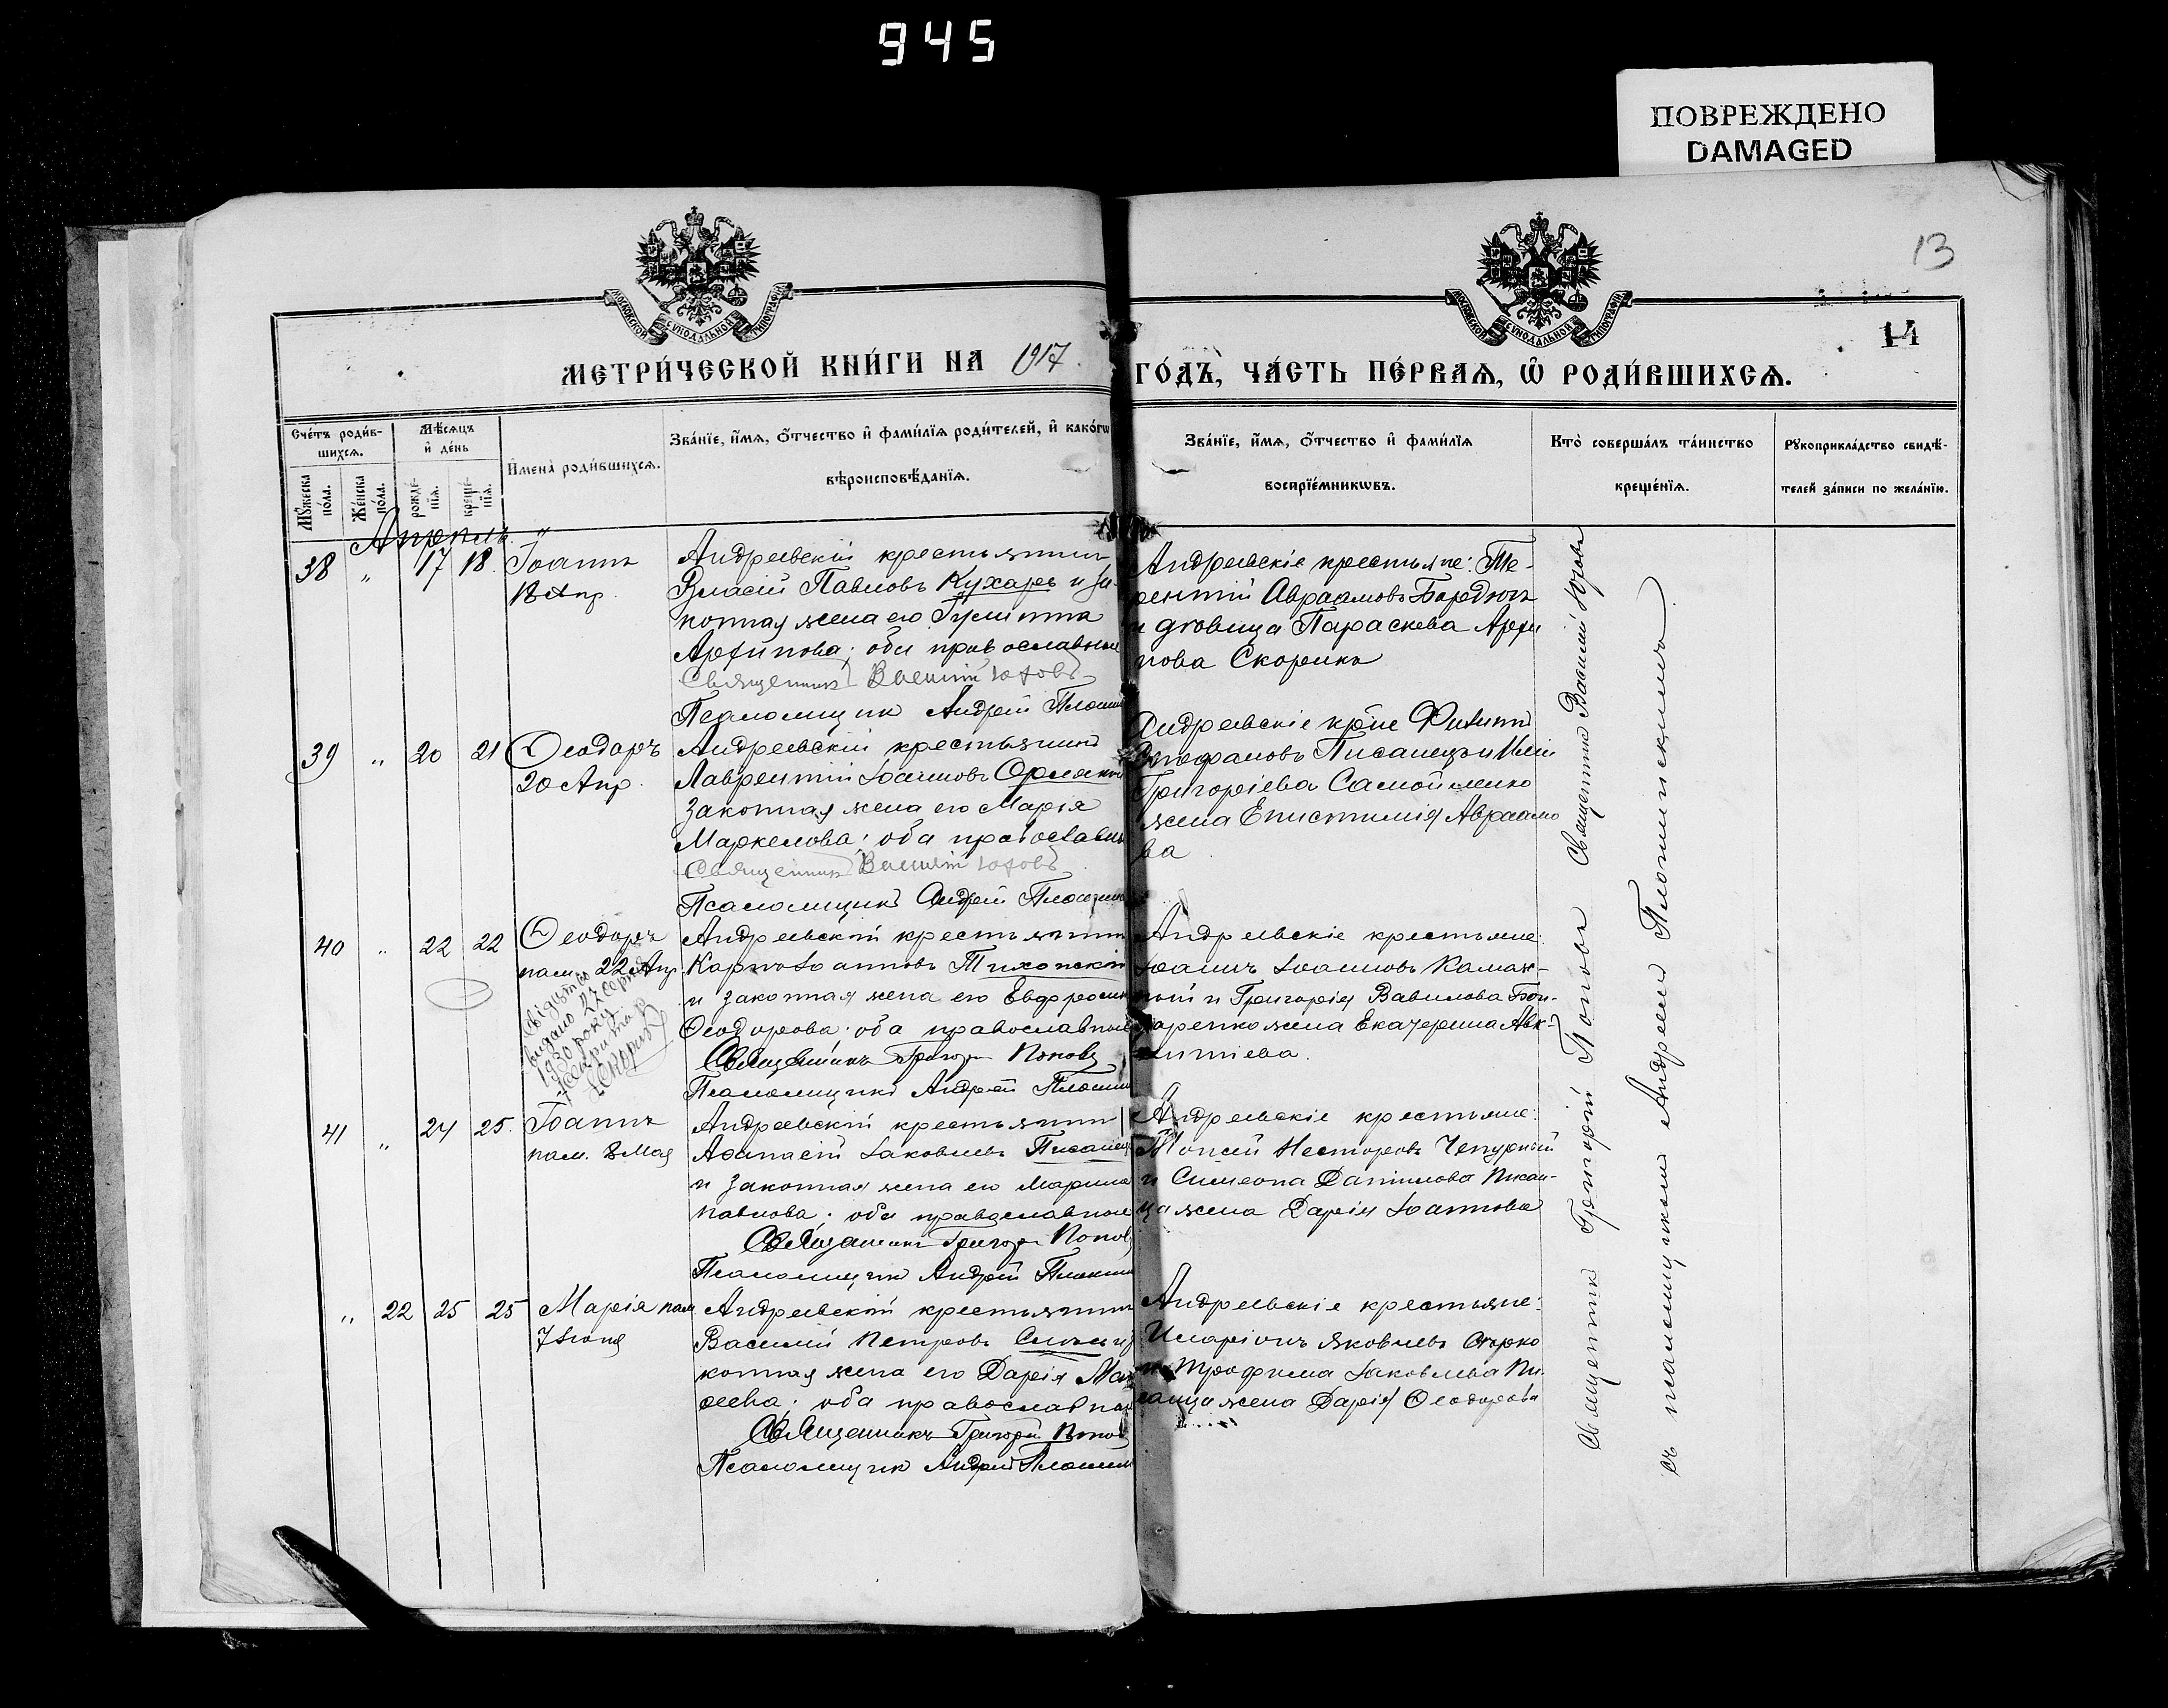 945
ПОВРЕЖДЕНО
DAMAGED
13
14
МОСКОВСКОЙ СѴНОДАЛЬНОЙ ТИПОГРАФІИ
МОСКОВСКОЙ СѴНОДАЛЬНОЙ ТИПОГРАФІИ
МЕТРИ́ЧЕСКОЙ КНИ́ГИ НА 1917 ГО́ДЪ, ЧА́СТЬ ПЕ́РВАѦ, Ѡ РОДИ́ВШИХСѦ.
Сче́тъ роди́в-
шихсѧ.
Мꙋ́жеска по́ла.
Же́нска по́ла.
Мѣ́сѧцъ и҆ де́нь
рожде́-
нїѧ.
креще́-
нїѧ.
И҆мена̀ роди́вшихсѧ.
Зва́нїе, и҆́мѧ, ѻ҆́тчество и҆ фами́лїѧ роди́телей, и҆ како́гѡ
вѣроисповѣ́данїѧ.
Зва́нїе, и҆́мѧ, ѻ҆́тчество и҆ фами́лїѧ
воспрїе́мникѡвъ.
Кто̀ соверша́лъ та́инство
креще́нїѧ.
Рꙋкоприкла́дство свидѣ́-
телей за́писи по жела́нїю.
Апрель
38 " 17 18 Іоаннъ
18 Апр.
Андреевскій крестьянинъ
Власій Павловъ Кухарь и за-
конная жена его
Архипова; оба православные
Священник Василій Юговъ
Псаломщик Андрей
Андреевскіе крестьяне: Те-
рентій Авраамовъ
и вдовица Параскева Архи
пова Скорик
39 " 20 21 Ѳеодоръ
20 Апр.
Андреевскій крестьянинъ
Лаврентій Іоанновъ
законная жена его Марія
Маркелова; оба православн
Священник Василій Юговъ
Псаломщикъ Андрей
Андреевскіе кр̃не Филипп
Писанецъ и
Григоріева Самойленко
жена Епистимія Авраамо
ва
40 " 22 22 Ѳеодоръ
пам. 22 Апр.
видано 27
1930 року
Андреевскій крестьянинъ
Карпъ Іоанновъ Тихонскій
и законная жена его Евфросин
Ѳеодорова; оба православные
Священникъ Григорій Поповъ
Псаломщикъ Андрей
Андреевскіе крестьяне:
Іоаннъ Іоанновъ
и Григорія Вавилова Бон-
даренко жена Екатерина
41 " 24 25 Іоаннъ
пам. 8 Мая
Андреевскій крестьянинъ
Аѳанасій Іаковлевъ Писанец
и законная жена его Марина
Павлова; оба православные
Священникъ Григорій Поповъ
Псаломщик Андрей
Андреевскіе крестьяне:
Моисей Несторовъ Чепурный
и Симеона Даниилова Писан-
ца жена Дарія Іоаннова
" 22 25 25 Марія пам
7 Іюня
Андреевскій крестьянинъ
Василій Петровъ
конная жена его Дарія
оба православные
Священникъ Григорій Поповъ
Псаломщик Андрей
Андреевскіе крестьяне:
Иларіонъ Яковлевъ
и Трофима Іаковлева Пи-
санца жена Дарія Ѳеодорова
Священник Григорій Поповъ Священник Василій Юговъ
съ псаломщиком Андреем Плотницким